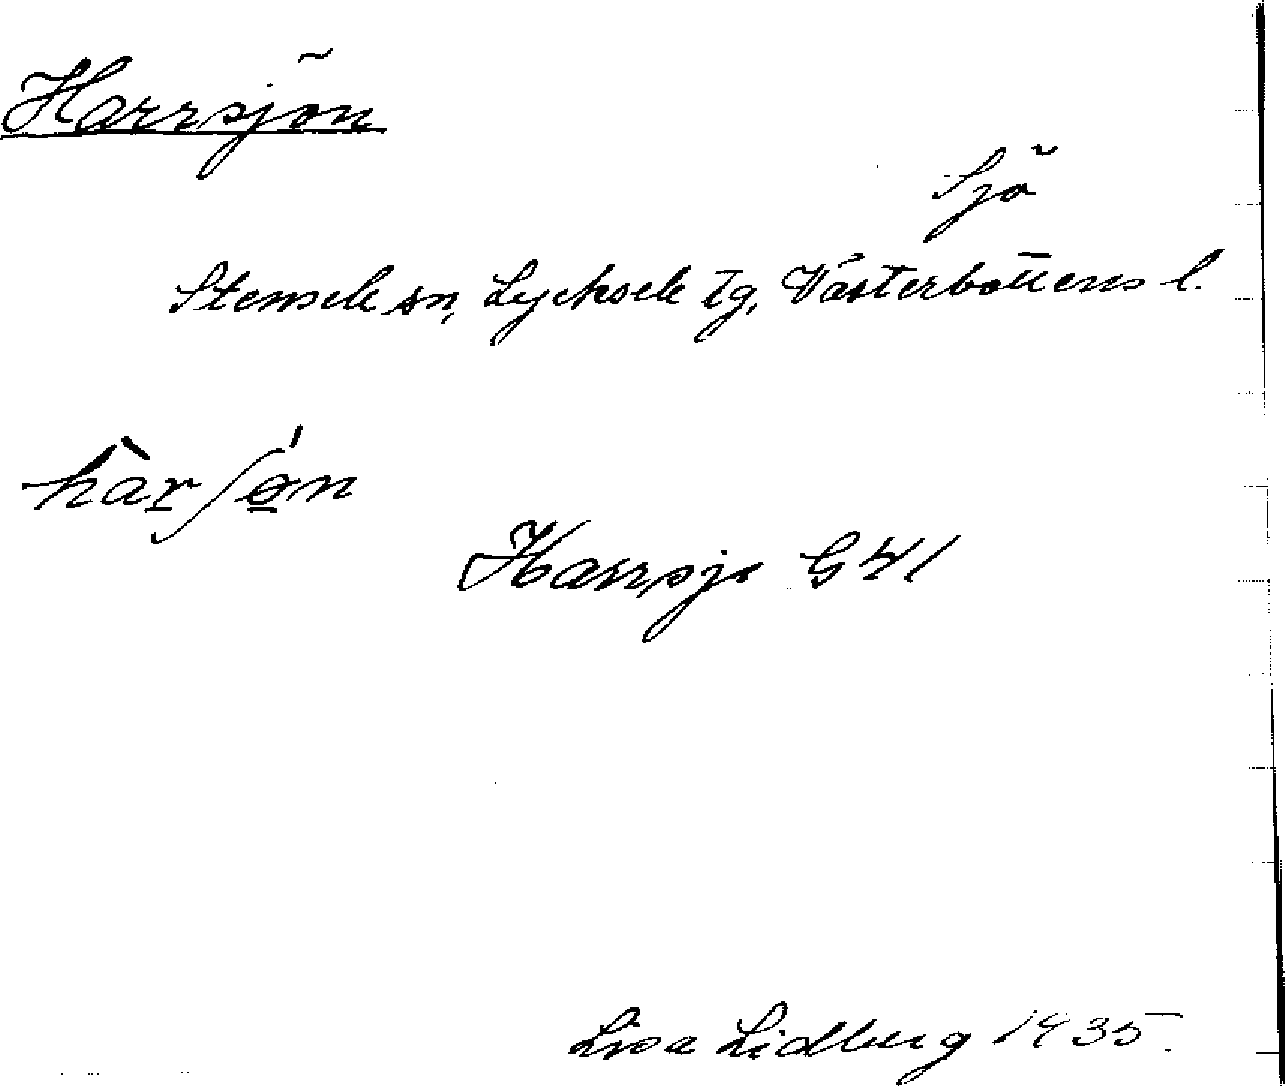 Harrsjön
Sjö
Stensele sn, Lycksele tg, Västerbottens l.
hàrʃǿ̲n
Harrsjö G41
Lisa Lidberg 1935.